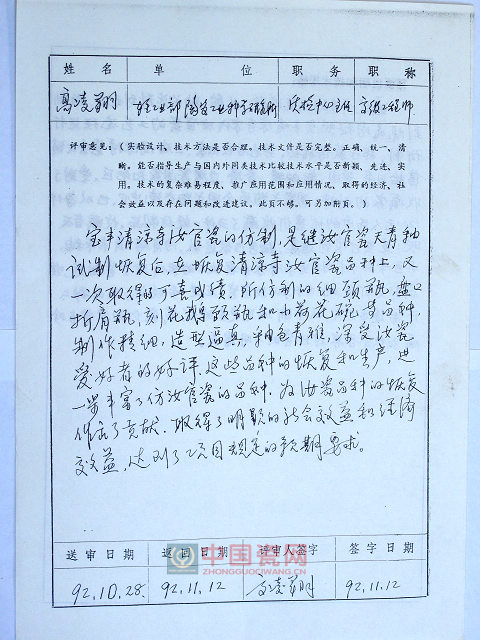 姓名 单位 职务 职称
高凌翔 轻工业部陶瓷工业科学研究所 质检中心主任 高级工程师
评审意见：（实验设计、技术方法是否合理。技术文件是否完整。正确、统一、清
晰。能否指导生产与国内外同类技术比较技术水平是否新颖、先进、实
用。技术的复杂难易程度、推广应用范围和应用情况。取得的经济、社
会效益以及存在问题和改进建议。此页不够，可另加附页。）
宝丰清凉寺汝官瓷的仿制，是继汝官瓷天青釉
试制恢复后，在恢复清凉寺汝官瓷品种上，又
一次取得的可喜成绩。所仿制的细颈瓶，盘口
折肩瓶，刻花鹅颈瓶和小荷花碗等品种，
制作精细，造型逼真，釉色青雅，深受汝瓷
爱好者的好评。这些品种的恢复和生产，进
一步丰富了仿汝官瓷的品种，为汝瓷品种的恢复
作出了贡献。取得了明显的社会效益和经济
效益，达到了项目规定的预期要求。
送审日期 返回日期 评审人签字 签字日期
92.10.28. 92.11.12 高凌翔 92.11.12
中国瓷网
ZHONGGUOCIWANG.COM